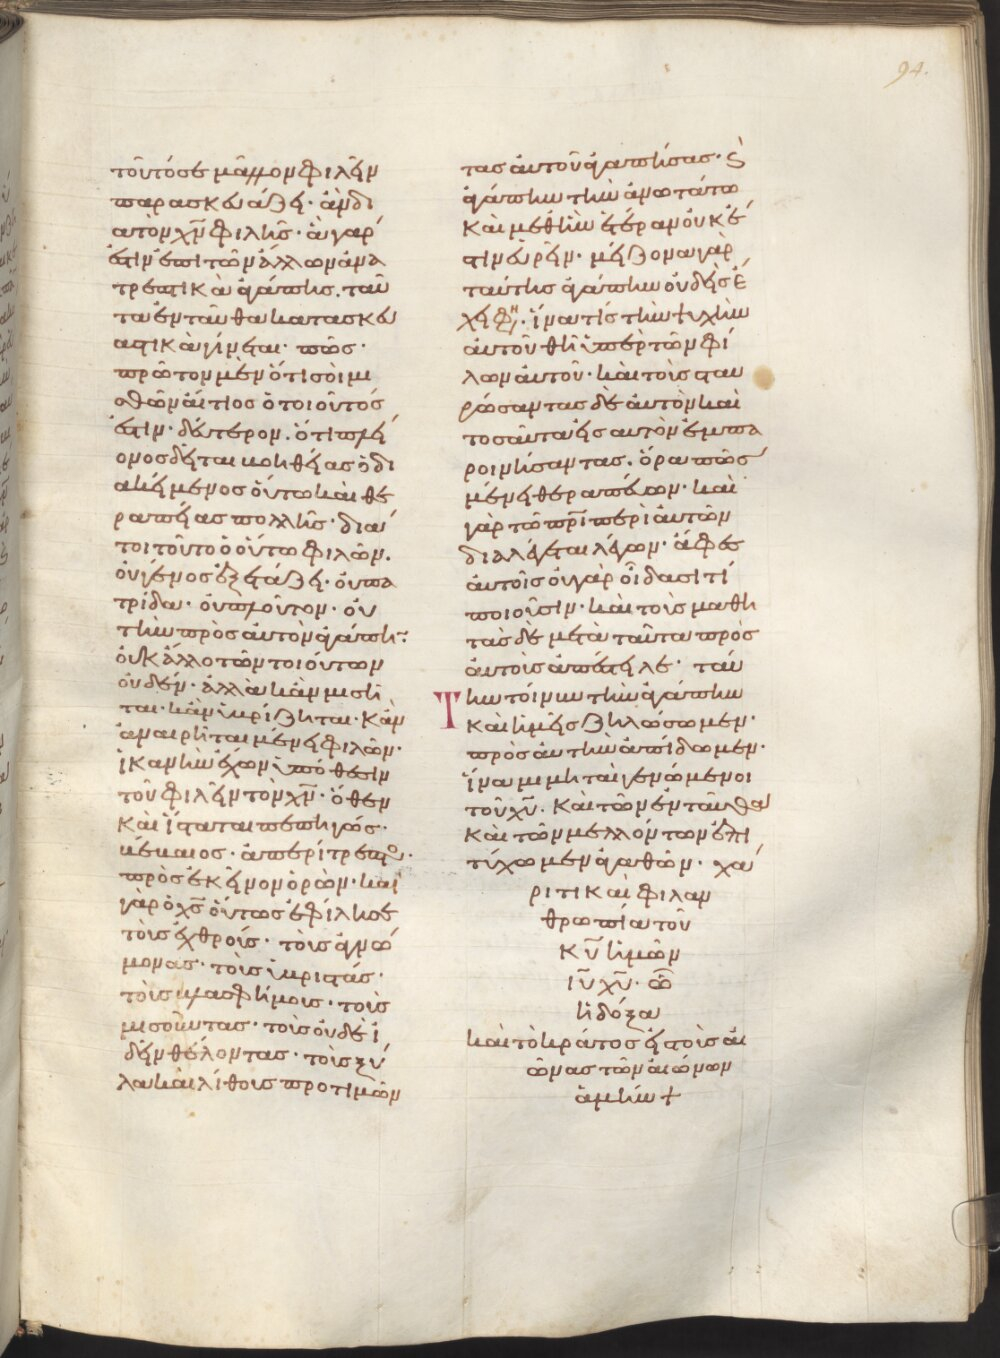 94.
τοῦτό σε μᾶλλον φιλεῖν
παρασκευάζει· ἂν δι
ὰ τὸν χν̄ φιλῇς· ἃ γάρ
ἐστιν ἐπὶ τῶν ἄλλων ἀνα
τρεπτικὰ ἀγάπης. ταῦ
τα ἐνταῦθα κατασκευ
αστικὰ γίνεται· πῶς·
πρῶτον μὲν ὅτι σοὶ μι
σθῶν αἴτιος ὁ τοιοῦτός
ἐστιν· δεύτερον. ὅτι πλεί
ονος δεῖται βοηθείας ὁ δι
ακείμενος οὕτω καὶ θε
ραπείας πολλῆς· διά
τοι τοῦτο ὁ οὕτω φιλῶν.
οὐ γένος ἐξετάζει· οὐ πα
τρίδα· οὐ πλοῦτον· οὐ
τὴν πρὸς αὐτὸν ἀγάπην·
οὐκ ἄλλο τῶν τοιούτων
οὐδέν· ἀλλὰ κἂν μισῆ
ται· κἂν ὑβρίζηται· κἂν
ἀναιρῆται μένει φιλῶν·
ἱκανὴν ἔχων ὑπόθεσιν
τοῦ φιλεῖν τὸν χν̄· ὅθεν
καὶ ἵσταται πεπηγώς·
βέβαιος· ἀπερίτρεπτος·
πρὸς ἐκεῖνον ὁρῶν· καὶ
γὰρ ὁ χς̄ οὕτως ἐφίλησε
τοὺς ἐχθρούς· τοὺς ἀγνώ
μονας· τοὺς ὑβριστάς·
τοὺς βλασφήμους· τοὺς
μισοῦντας· τοὺς οὐδὲ ἰ
δεῖν θέλοντας· τοὺς ξύ
λα καὶ λίθους προτιμῶν
τας αὐτοῦ ἀγαπήσας· καὶ
ἀγάπην τὴν ἀνωτάτω
καὶ μεθ' ἣν ἑτέραν οὐκ ἔσ
τιν εὑρεῖν· μείζονα γὰρ
ταύτης ἀγάπην οὐδεὶς ἔ
χει φη· ἵνα τίς τὴν ψυχὴν
αὐτοῦ θῇ ὑπὲρ τῶν φί
λων αὐτοῦ· καὶ τοὺς σταυ
ρώσαντας δὲ αὐτὸν καὶ
τοσαῦτα εἰς αὐτὸν ἐμπα
ροινήσαντας. ὅρα πῶς
μένει θεραπεύων· καὶ
γὰρ τῶ πρι̅ περὶ αὐτῶν
διαλέγεται λέγων· ἄφες
αὐτοῖς οὐ γὰρ οἴδασι τί
ποιοῦσιν· καὶ τοὺς μαθη
τὰς δὲ μετὰ ταῦτα πρὸς
αὐτοὺς ἀπέστειλε· ταύ
Την τοίνυν τὴν ἀγάπην
καὶ ἡμεῖς ζηλώσωμεν·
πρὸς αὐτὴν ἀπίδωμεν·
ἵνα μιμηταὶ γενώμενοι
τοῦ χυ̅. καὶ τῶν ἐνταῦθα
καὶ τῶν μελλόντων ἐπι
τύχωμεν ἀγαθῶν· χά
ριτι καὶ φιλαν
θρωπία τοῦ
κυ̅ ἡμῶν
ιυ̅ χυ̅· ὧ
ἡ δόξα
καὶ τὸ κράτος εἰς τοὺς αἰ
ῶνας τῶν αἰώνων
ἀμήν +